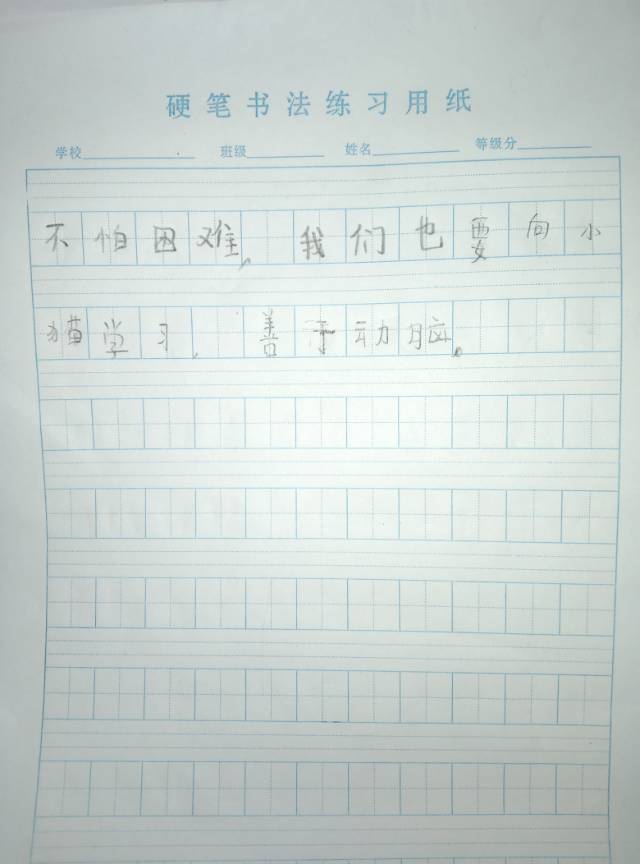 硬笔书法练习用纸
学校 班级 姓名 等级分
不怕困难，我们也要向小
猫学习，善于动脑。